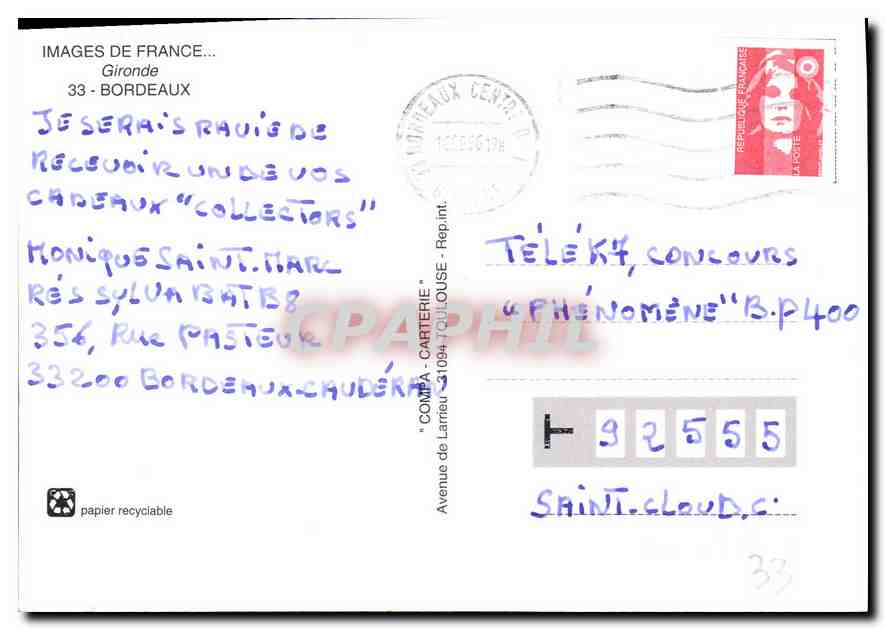 IMAGES DE FRANCE...
Gironde
33 - BORDEAUX
JE SERAIS RAVIE DE
RECEVOIR UN DE VOS
CADEAUX "COLLECTORS"
MONIQUE SAINT.MARC
RÉS SYLVA BAT B8
356, RUE PASTEUR
33200 BORDEAUX-CAUDÉRAN
papier recyclable
" COMPA - CARTERIE "
Avenue de Larrieu - 31094 TOULOUSE - Rep.int.
BORDEAUX CENTRE
RÉPUBLIQUE FRANÇAISE
LA POSTE
TÉLÉ K7, CONCOURS
"PHÉNOMÈNE" B.P 400
T 92555
SAINT-CLOUD.C.
33
CPAPHIL